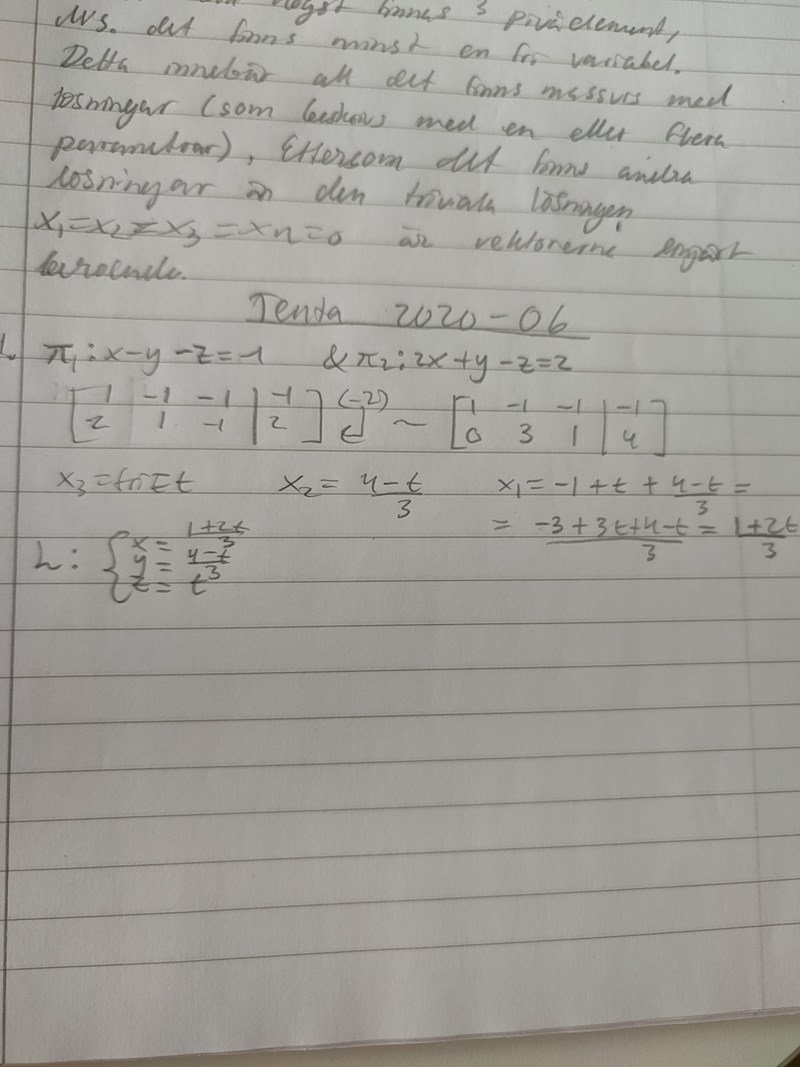 högst finnes 3 pivåelement,
dvs. det finns minst en fri variabel.
Detta innebär att det finns massvis med
lösningar (som med en eller flera
parametrar), Eftersom det finns andra
lösningar än den triviala lösningen
x₁=x₂=x₃=xn=0 är vektorerna linjärt
beroende.
Tenta 2020-06
1. π₁: x-y-z=-1 & π₂: 2x+y-z=2
[1 -1 -1 | -1] (-2) ~ [1 -1 -1 | -1]
[2 1 -1 | 2] [0 3 1 | 4]
x₃=fri=t x₂ = (4-t)/3 x₁ = -1+t+(4-t)/3 =
= (-3+3t+4-t)/3 = (1+2t)/3
L: { x = (1+2t)/3
y = (4-t)/3
z = t